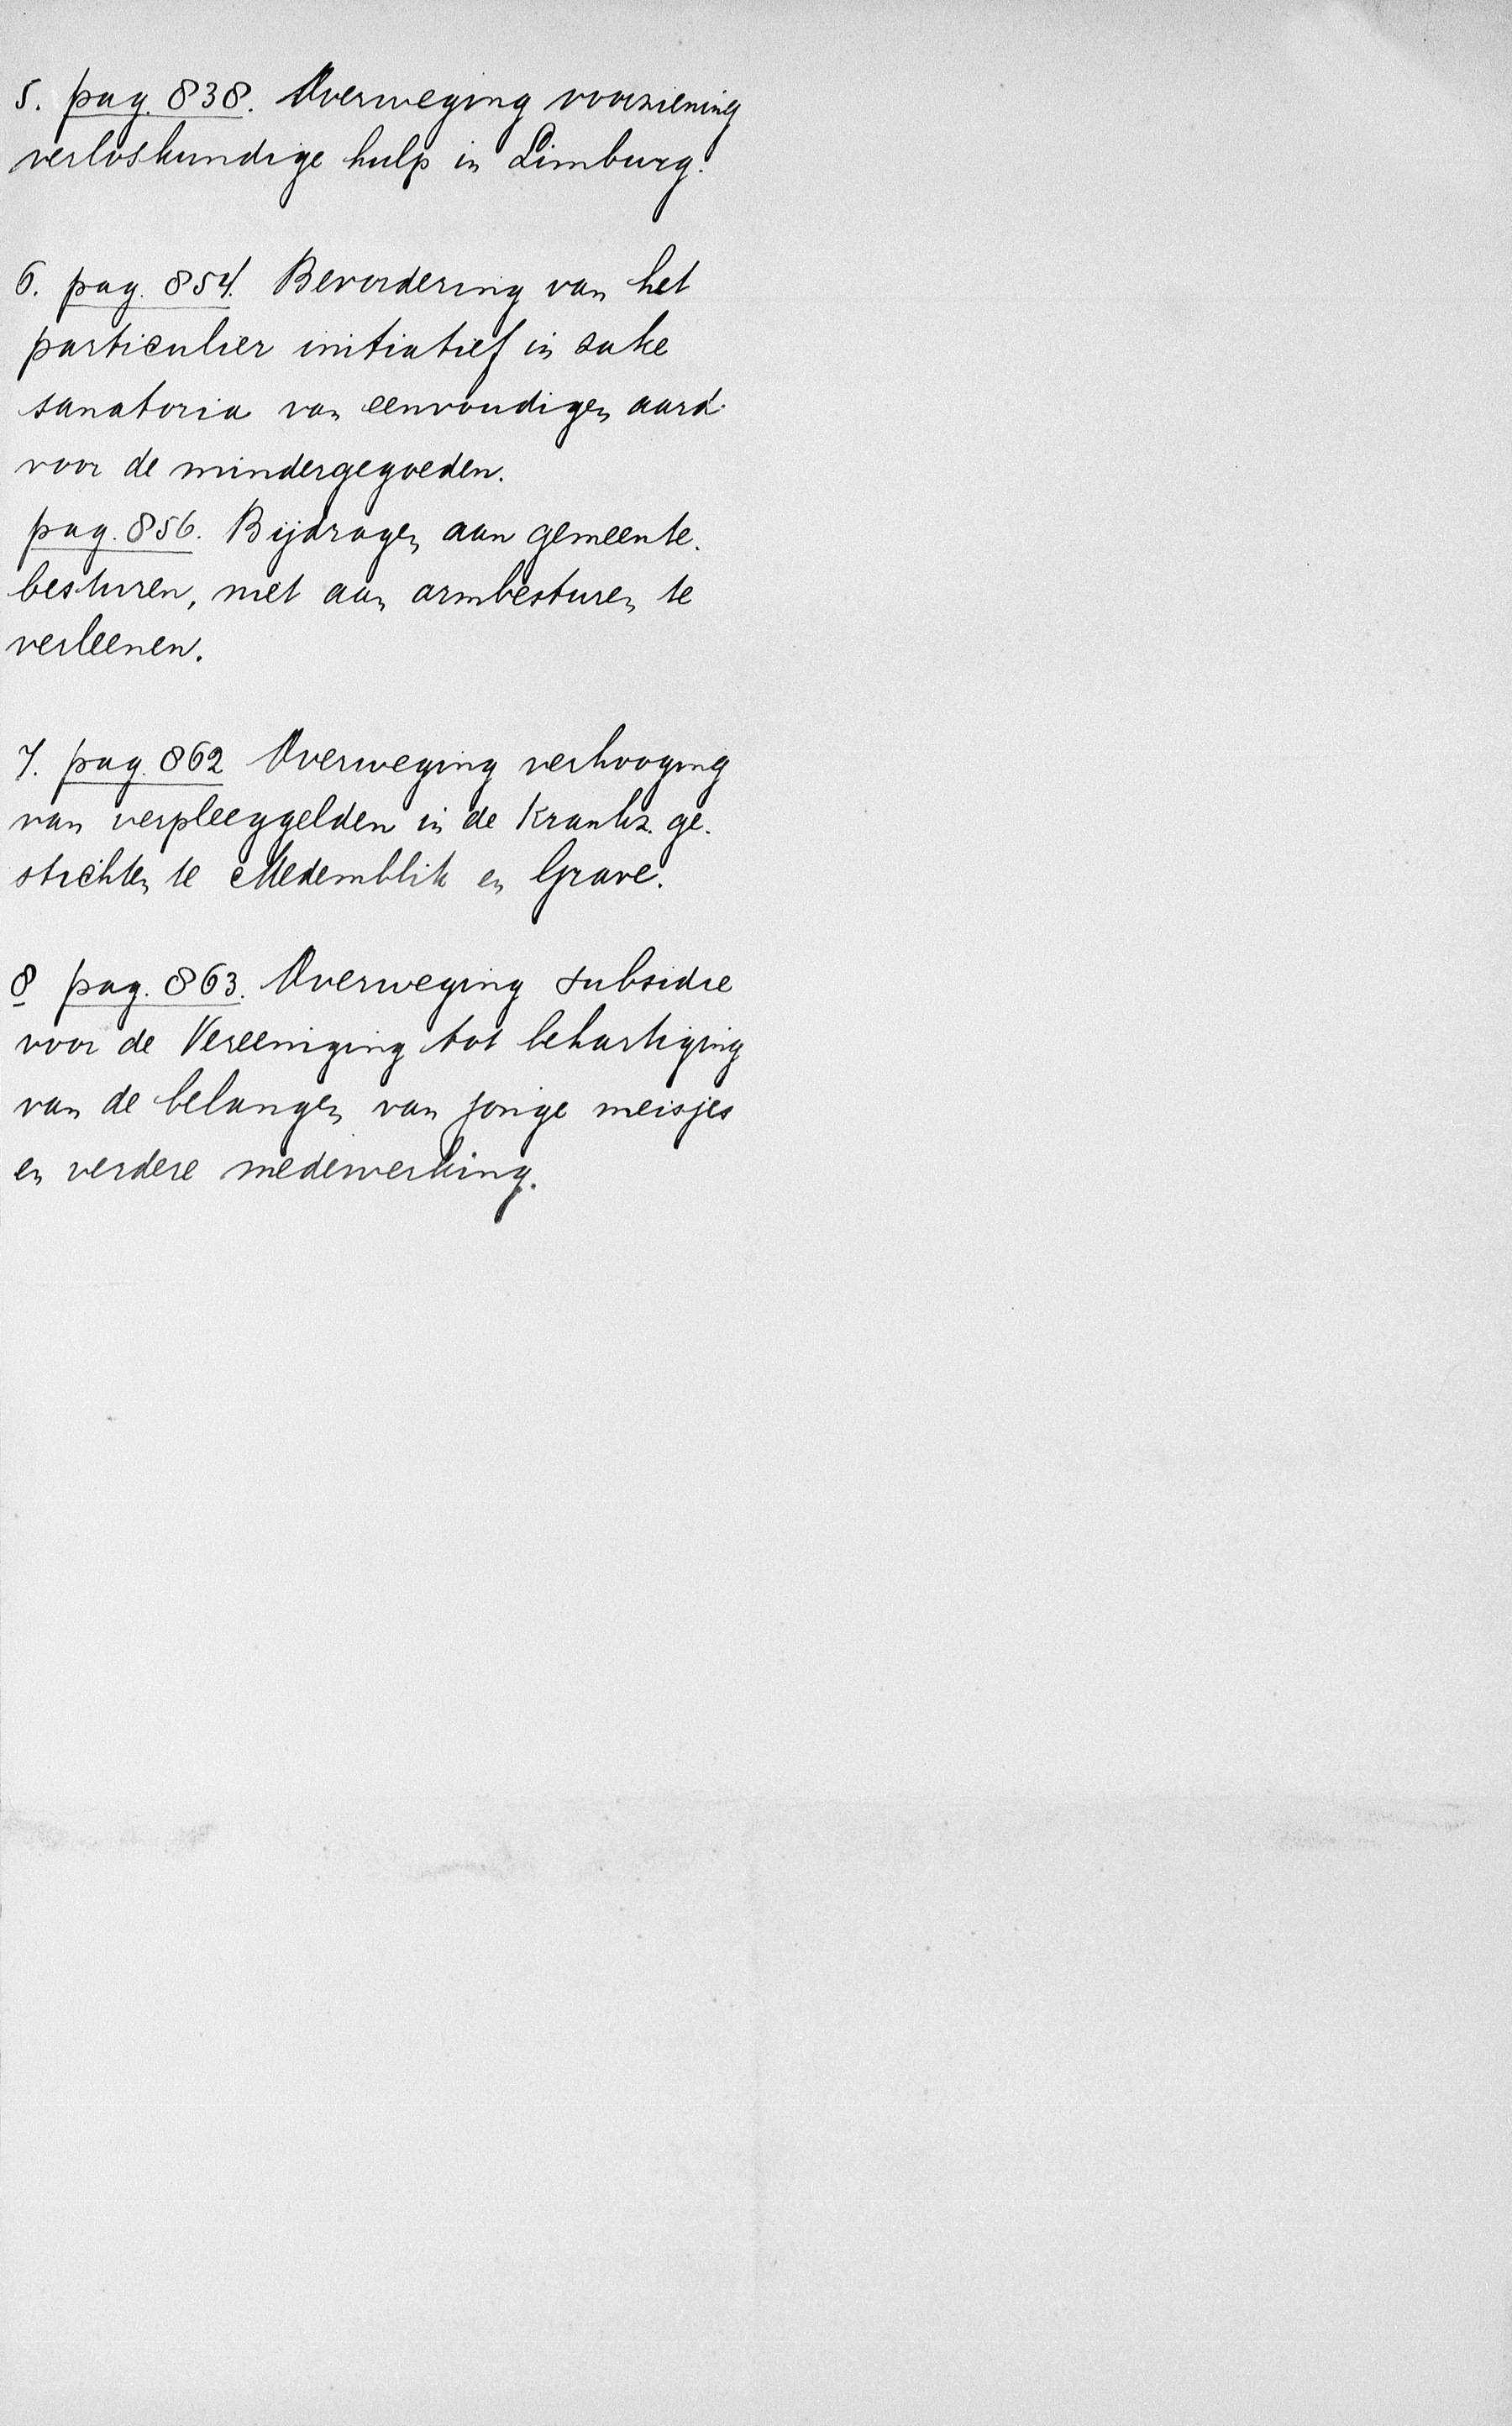 5. pag. 838. Overweging voorziening
verloskundige hulp in Limburg.
6. pag. 854. Bevordering van het
particulier initiatief in zake
sanatoria van eenvoudigen aard
voor de mindergegoeden.
pag. 856. Bijdragen aan gemeente-
besturen, niet aan armbesturen te
verleenen.
7. pag. 862 Overweging verhooging
van verpleeggelden in de Krankz. ge-
stichten te Medemblik en Grave.
8 pag. 863. Overweging subsidie
voor de Vereeniging tot behartiging
van de belangen van jonge meisjes
en verdere medewerking.